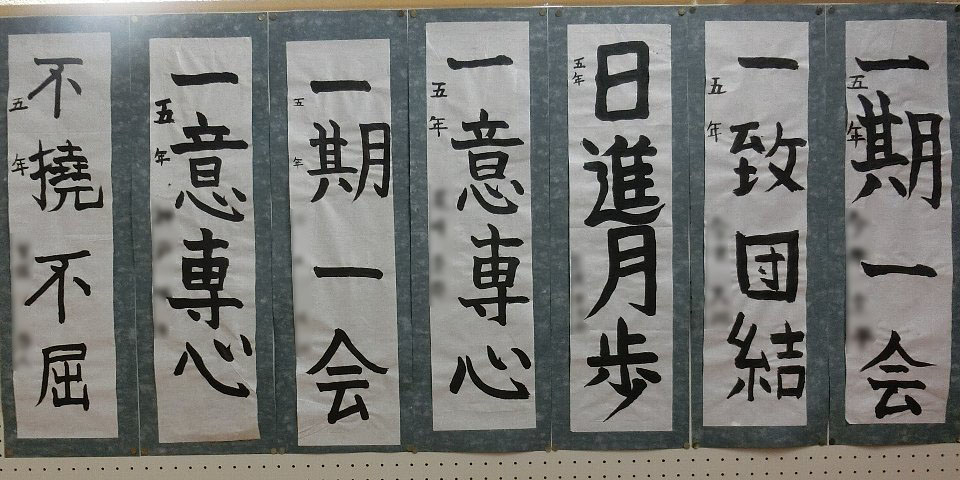 一期一会
五年
一致団結
五年
日進月歩
五年
一意専心
五年
一期一会
五年
一意専心
五年
不撓不屈
五年